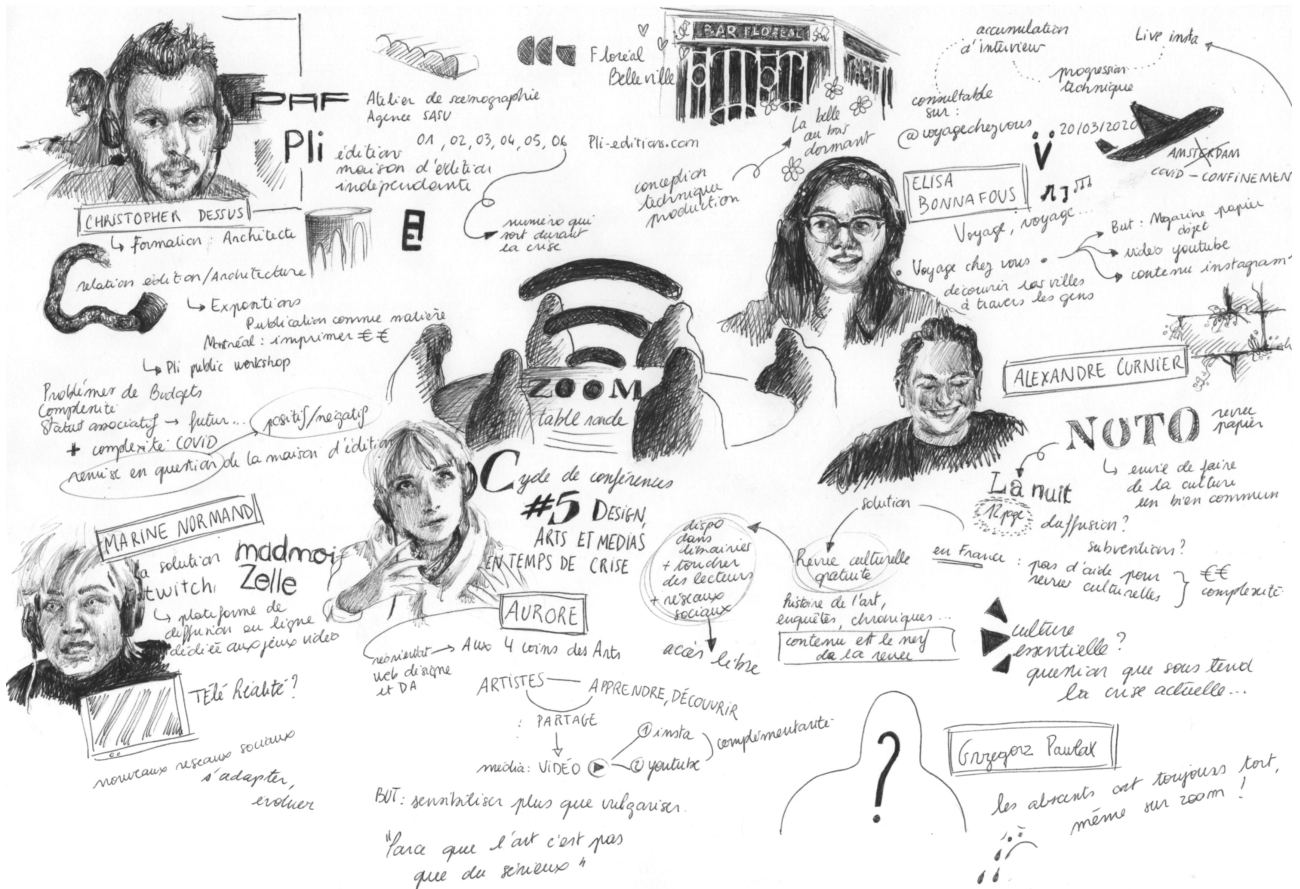 PAF
Atelier de scenographie
Agence SASU
Pli
édition
maison d'édition
indépendante
01, 02, 03, 04, 05, 06
Pli-editions.com
numéro qui
sort durant
la crise
CHRISTOPHER DESSUS
Formation : Architecte
relation édition/Architecture
Expositions
Publication comme matière
Montréal : imprimer € €
Pli public workshop
Problèmes de Budgets
Complexité
Status associatif → futur... positif/négatif
+ complexité COVID
remise en question de la maison d'édition
Floréal
Belleville
BAR FLOREAL
La belle
au bois
dormant
conception
technique
production
accumulation
d'interview
Live insta
progression
technique
consultable
sur :
@voyagechezvous
20/03/2020
AMSTERDAM
COVID - CONFINEMENT
ELISA
BONNAFOUS
Voyage, voyage...
Voyage chez vous
découvrir les villes
à travers les gens
But : Magazine papier
objet
vidéo youtube
contenu instagram
ZOOM
table ronde
Cycle de conférences
#5 DESIGN,
ARTS ET MEDIAS
EN TEMPS DE CRISE
ALEXANDRE CURNIER
NOTO
revue
papier
envie de faire
de la culture
un bien commun
La nuit
12 page
diffusion?
subventions?
en France : pas d'aide pour
revues culturelles
€€
complexité
solution
Revue culturelle
gratuite
histoire de l'art,
enquêtes, chroniques...
contenu est le nerf
de la revue
dispo
dans
+ toucher
des lecteurs
+ réseaux
sociaux
accès libre
culture
essentielle ?
question que sous tend
la crise actuelle...
MARINE NORMAND
la solution
twitch,
madmoi
Zelle
plateforme de
diffusion en ligne
dédiée aux jeux vidéo
Télé Réalité ?
nouveaux reseaux sociaux
s'adapter,
évoluer
AURORE
réorienter
web designe
et DA
Aux 4 coins des Arts
ARTISTES
APPRENDRE, DÉCOUVRIR
: PARTAGE
media : VIDÉO
1 insta
2 youtube
complémentarité
BUT : sensibiliser plus que vulgariser.
"Parce que l'art c'est pas
que du sérieux"
?
Grzegorz Pawlak
les absents ont toujours tort,
même sur zoom !